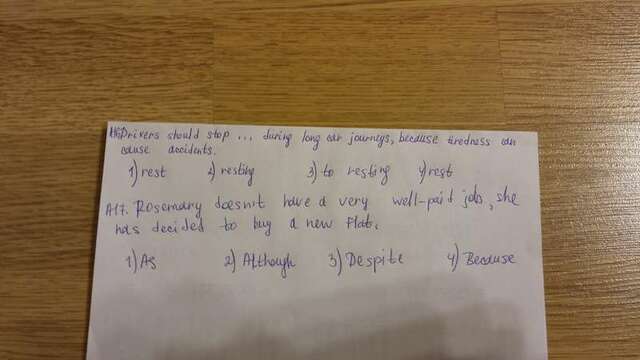 A16. Drivers should stop ... during long car journeys, because tiredness can
cause accidents.
1) rest 2) resting 3) to resting 4) rest
A17. Rosemary doesn't have a very well-paid job, she
has decided to buy a new flat.
1) As 2) Although 3) Despite 4) Because